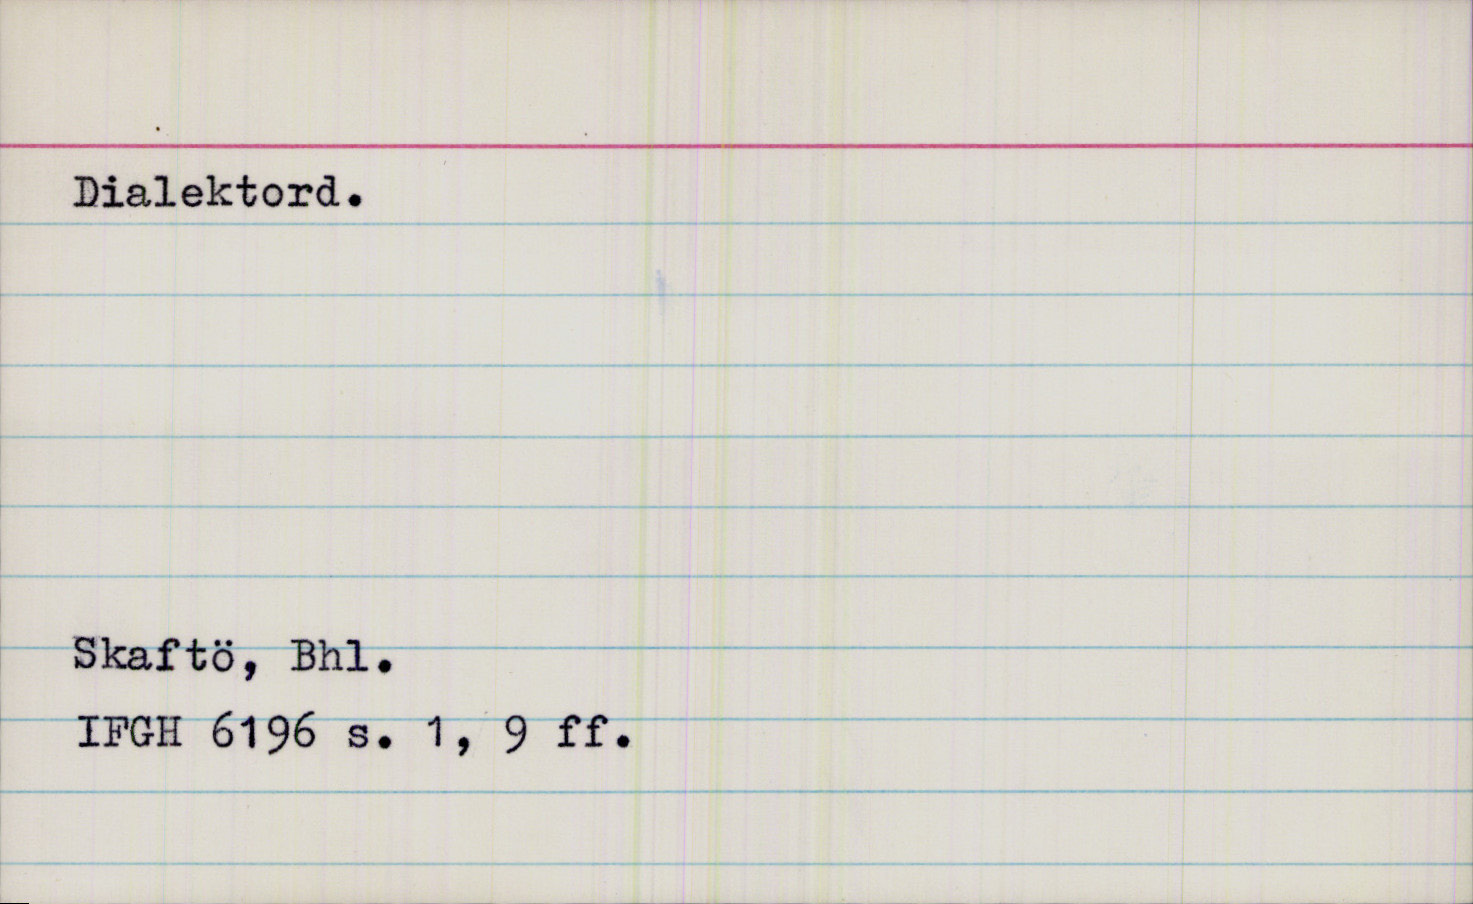 Dialektord.
Skaftö, Bhl.
IFGH 6196 s. 1, 9 ff.